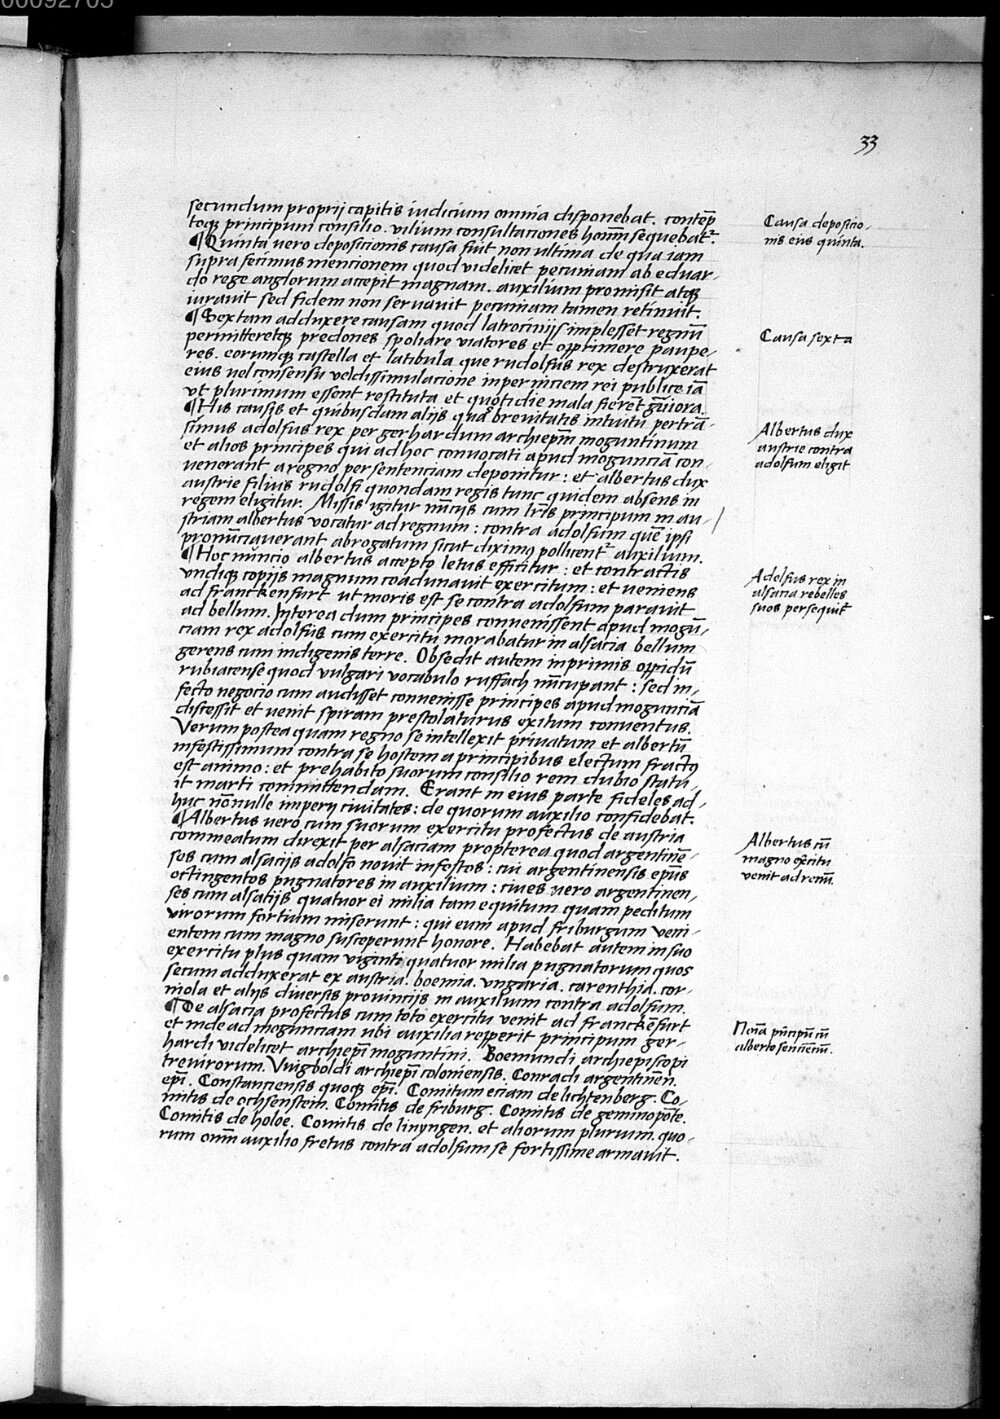 33
secundum proprij capitis iudicium omnia disponebat. contēp
toq; principum consilio. vilium consultaciones hominū sequebat᷑.
¶ Quinta uero deposicionis causa fuit non ultima de qua iam
supra fecimus mencionem quod videlicet pecuniam ab eduar-
do rege anglorum accepit magnam. auxilium promisit atq;
iurauit sed fidem non seruauit pecuniam tamen retinuit.
¶ Sextam adduxere causam quod latrocinijs implesset regnū
permitteretq; predones spoliare viatores et opprimere paupe-
res. eorumq; castella et latibula que rudolfus rex destruxerat
eius uel consensu vel dissimulacione in perniciem rei publice iā
vt plurimum essent restituta et quotidie mala fierēt grauiora.
¶ His causis et quibusdam alijs quas breuitatis intuitu pertrā-
simus adolfus rex per gerhardum archiepm̄ moguntinum
et alios principes qui ad hoc conuocati apud mogunciā con-
venerant a regno per sentenciam deponitur: et albertus dux
austrie filius rudolfi quondam regis tunc quidem absens in
regem eligitur. Missis igitur nūcijs cum lr̄is principum in au-
striam albertus vocatur ad regnum: contra adolfum quē ipsi
pronūciauerant abrogatum sicut diximus pollicent᷑ auxilium.
¶ Hoc nuncio albertus accepto letus efficitur: et contractis
vndiq; copijs magnum coadunauit exercitum: et veniens
ad franckenfurt ut moris est se contra adolfum parauit
ad bellum. Interea dum principes conuenissent apud mogū-
ciam rex adolfus cum exercitu morabatur in alsacia bellum
gerens cum indigenis terre. Obsedit autem inprimis oppidū
rubiacense quod vulgari vocabulo ruffach nūcupant: sed in-
fecto negocio cum audisset conuenisse principes apud mogunciā
discessit et venit spiram prestolaturus exitum conuentus.
Verum postea quam regno se intellexit priuatum et albertū
infestissimum contra se hostem a principibus electum fractus
est animo: et prehabito suorum consilio rem dubio statu-
it marti committendam. Erant in eius parte fideles ad-
huc nōnulle imperij ciuitates: de quorum auxilio confidebat.
¶ Albertus vero cum suorum exercitu profectus de austria
commeatum direxit per alsaciam propterea quod argentinē-
ses cum alsacijs adolfo nouit infestos: cui argentinensis ep̄us
octingentos pugnatores in auxilium: ciues uero argentinen-
ses cum alsatijs quatuor ei milia tam equitum quam peditum
virorum fortium miserunt: qui eum apud friburgum veni-
entem cum magno susceperunt honore. Habebat autem in suo
exercitu plus quam viginti quatuor milia pugnatorum quos
secum adduxerat ex austria. boemia. vngaria. carenthia. cor-
niola et alijs diuersis prouincijs in auxilium contra adolfum.
¶ De alsacia profectus cum toto exercitu venit ad franckēfurt
et inde ad mogunciam ubi auxilia repperit principum ger-
hardi videlicet archiep̄i moguntini. Boemundi archiepiscopi
treuirorum. Vuigboldi archiep̄i coloniensis. Conradi argentinēn.
ep̄i. Constanciensis quoq; ep̄i. Comitum eciam de lichtenberg. Co-
mitis de ochsenstein. Comitis de friburg. Comitis de geminopōte.
Comitis de holoe. Comitis de linyngen. et aliorum plurium. quo-
rum omniū auxilio fretus contra adolfum se fortissime armauit.
Causa depositio-
nis eius quinta.
Causa sexta
Albertus dux
austrie contra
adolfum eligit
Adolfus rex in
alsacia rebelles
suos persequit᷑
Albertus cū
magno exercitu
venit ad renū.
Noīa prīcipū cū
alberto sencienciū.